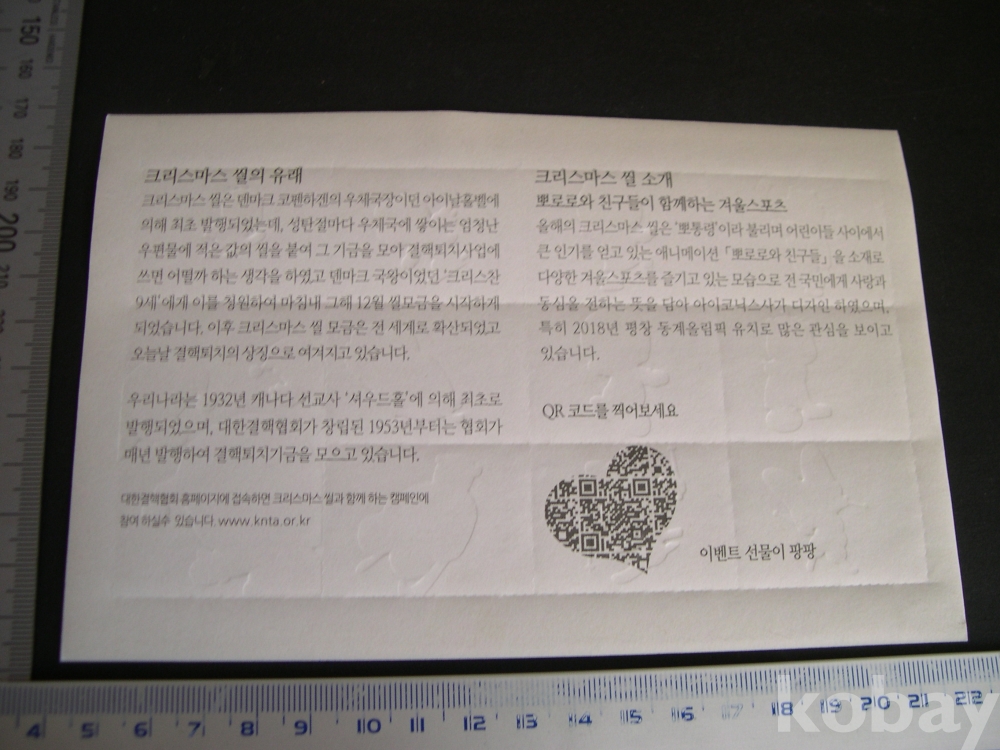 크리스마스 씰의 유래
크리스마스 씰은 덴마크 코펜하겐의 우체국장이던 아이날홀벨에
의해 최초 발행되었는데, 성탄절마다 우체국에 쌓이는 엄청난
우편물에 적은 값의 씰을 붙여 그 기금을 모아 결핵퇴치사업에
쓰면 어떨까 하는 생각을 하였고 덴마크 국왕이었던 '크리스찬
9세'에게 이를 청원하여 마침내 그해 12월 씰모금을 시작하게
되었습니다. 이후 크리스마스 씰 모금은 전 세계로 확산되었고
오늘날 결핵퇴치의 상징으로 여겨지고 있습니다.
우리나라는 1932년 캐나다 선교사 '셔우드홀'에 의해 최초로
발행되었으며, 대한결핵협회가 창립된 1953년부터는 협회가
매년 발행하여 결핵퇴치기금을 모으고 있습니다.
대한결핵협회 홈페이지에 접속하면 크리스마스 씰과 함께 하는 캠페인에
참여 하실수 있습니다. www.knta.or.kr
크리스마스 씰 소개
뽀로로와 친구들이 함께하는 겨울스포츠
올해의 크리스마스 씰은 '뽀통령'이라 불리며 어린아이들 사이에서
큰 인기를 얻고 있는 애니메이션 「뽀로로와 친구들」을 소재로
다양한 겨울스포츠를 즐기고 있는 모습으로 전 국민에게 사랑과
동심을 전하는 뜻을 담아 아이코닉스사가 디자인 하였으며,
특히 2018년 평창 동계올림픽 유치로 많은 관심을 보이고
있습니다.
QR 코드를 찍어보세요
이벤트 선물이 팡팡
150
160
170
180
190
200
210
4 5 6 7 8 9 10 11 12 13 14 15 16 17 18 19 20 21 22
kobay